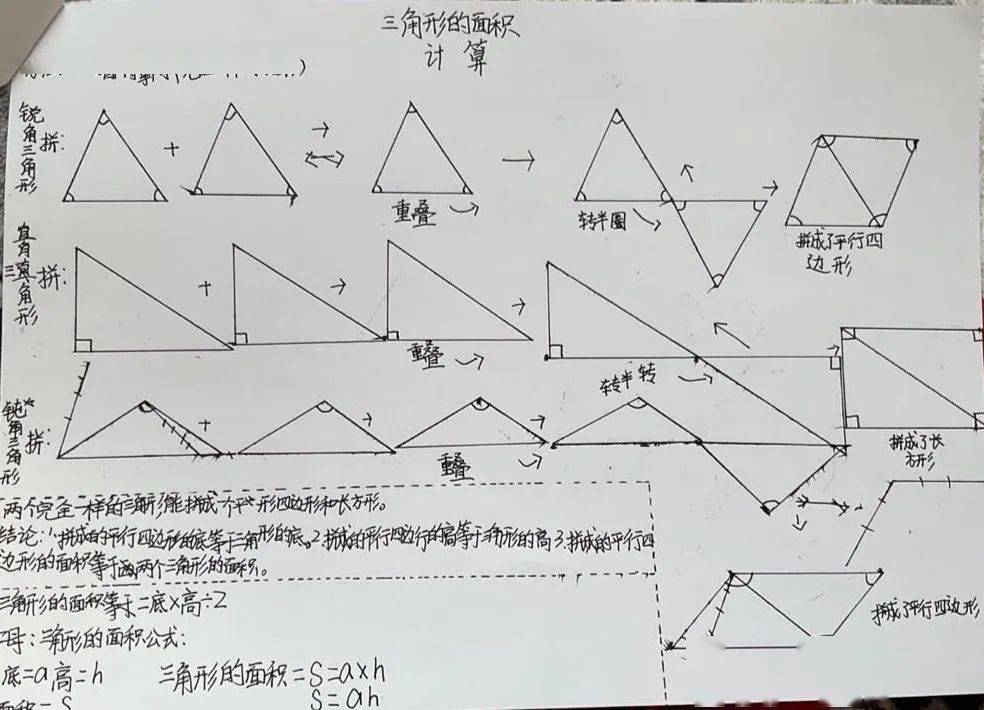 三角形的面积
计算
锐角三角形拼:
重叠
转半圈
拼成了平行四
边形
直角三角形拼:
重叠
转半转
拼成了长
方形
钝角三角形拼:
重叠
两个完全一样的三角形能拼成一个平行形四边形和长方形。
结论:1拼成的平行四边形的底等于三角形的底。2拼成的平行四边行的高等于三角形的高3.拼成的平行四
边形的面积等于两个三角形的面积。
拼成了平行四边形
三角形的面积等于二底×高÷2
母:三角形的面积公式:
底=a高=h 三角形的面积=S=a×h
面积=S S=ah